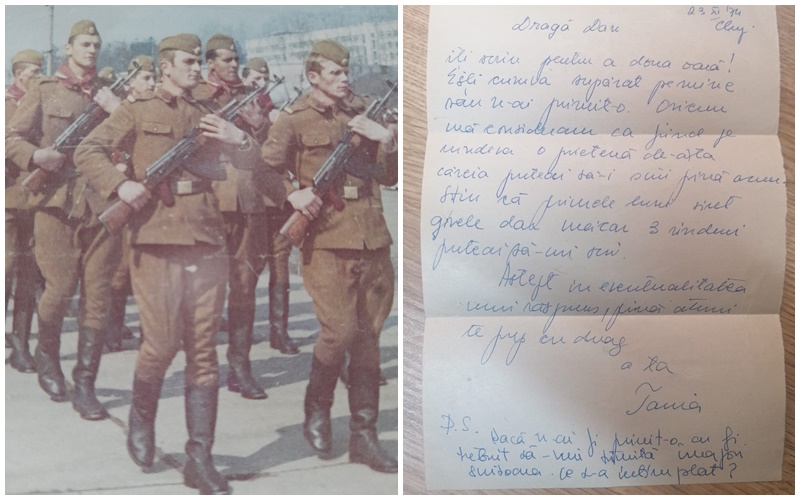 23 XI '74
Cluj
Dragă Dan
îți scriu pentru a doua oară!
Ești cumva supărat pe mine
sau n-ai primit-o. Oricum
mă consideram ca fiind pe
undeva o prietenă de-a ta
căreia puteai să-i scrii pînă acum.
Știu că primele luni sînt
grele dar măcar 3 rînduri
puteai să-mi scri.
Aștept în eventualitatea
unui răspuns, pînă atunci
te pup cu drag
a ta
Tania
P.S. Dacă n-ai fi primit-o ar fi
trebuit să-mi trimită
scrisoarea. Ce s-a întîmplat?